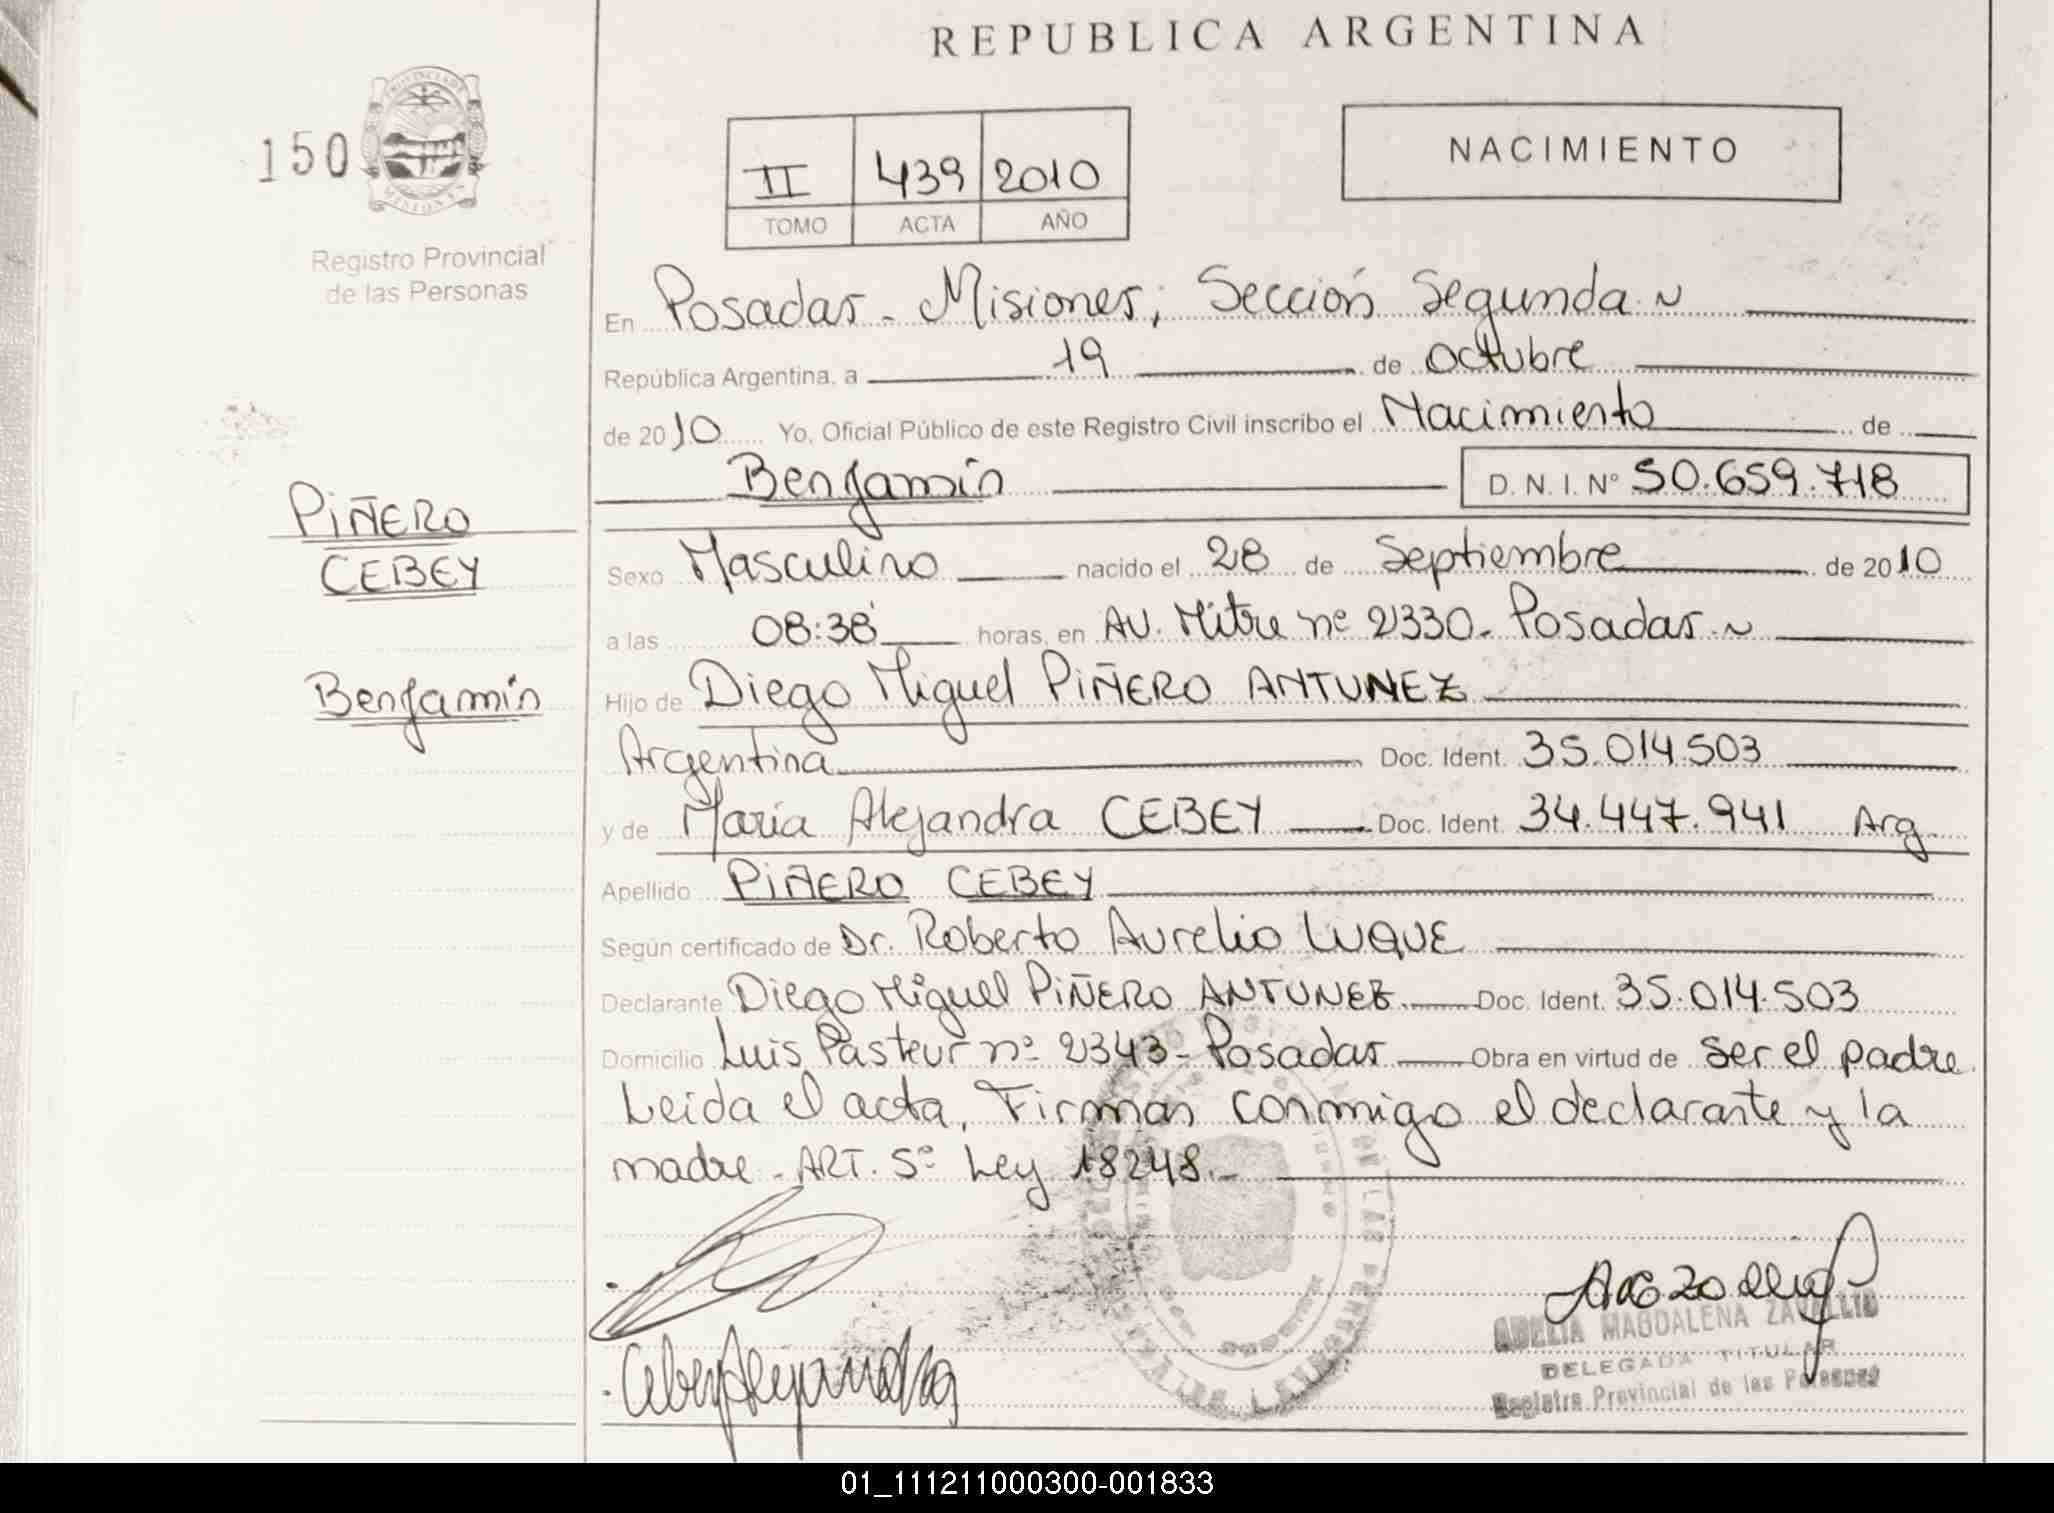 REPUBLICA ARGENTINA
150
PROVINCIA DE
MISIONES
Registro Provincial
de las Personas
II 439 2010
TOMO ACTA AÑO
NACIMIENTO
En Posadas - Misiones; Sección Segunda.~
República Argentina, a 19 de Octubre
de 2010 Yo, Oficial Público de este Registro Civil inscribo el Nacimiento de
Benjamín D. N. I. Nº 50.659.718
PIÑERO
CEBEY
Benjamín
Sexo Masculino nacido el 28 de Septiembre de 2010
a las 08:38' horas, en AV. Mitre nº 2330. Posadas.~
Hijo de Diego Miguel PIÑERO ANTUNEZ
Argentina Doc. Ident. 35.014.503
y de María Alejandra CEBEY Doc. Ident. 34.447.941 Arg.
Apellido PIÑERO CEBEY
Según certificado de Dr. Roberto Aurelio LUQUE
Declarante Diego Miguel PIÑERO ANTUNEZ Doc. Ident. 35.014.503
Domicilio Luis Pasteur nº 2343 - Posadas Obra en virtud de ser el padre
Leída el acta, Firman conmigo el declarante y la
madre - ART. 5º Ley 18248.-
Cebey Alejandra
ADELIA MAGDALENA ZARALLIO
DELEGADA TITULAR
Registro Provincial de las Personas
01_111211000300-001833